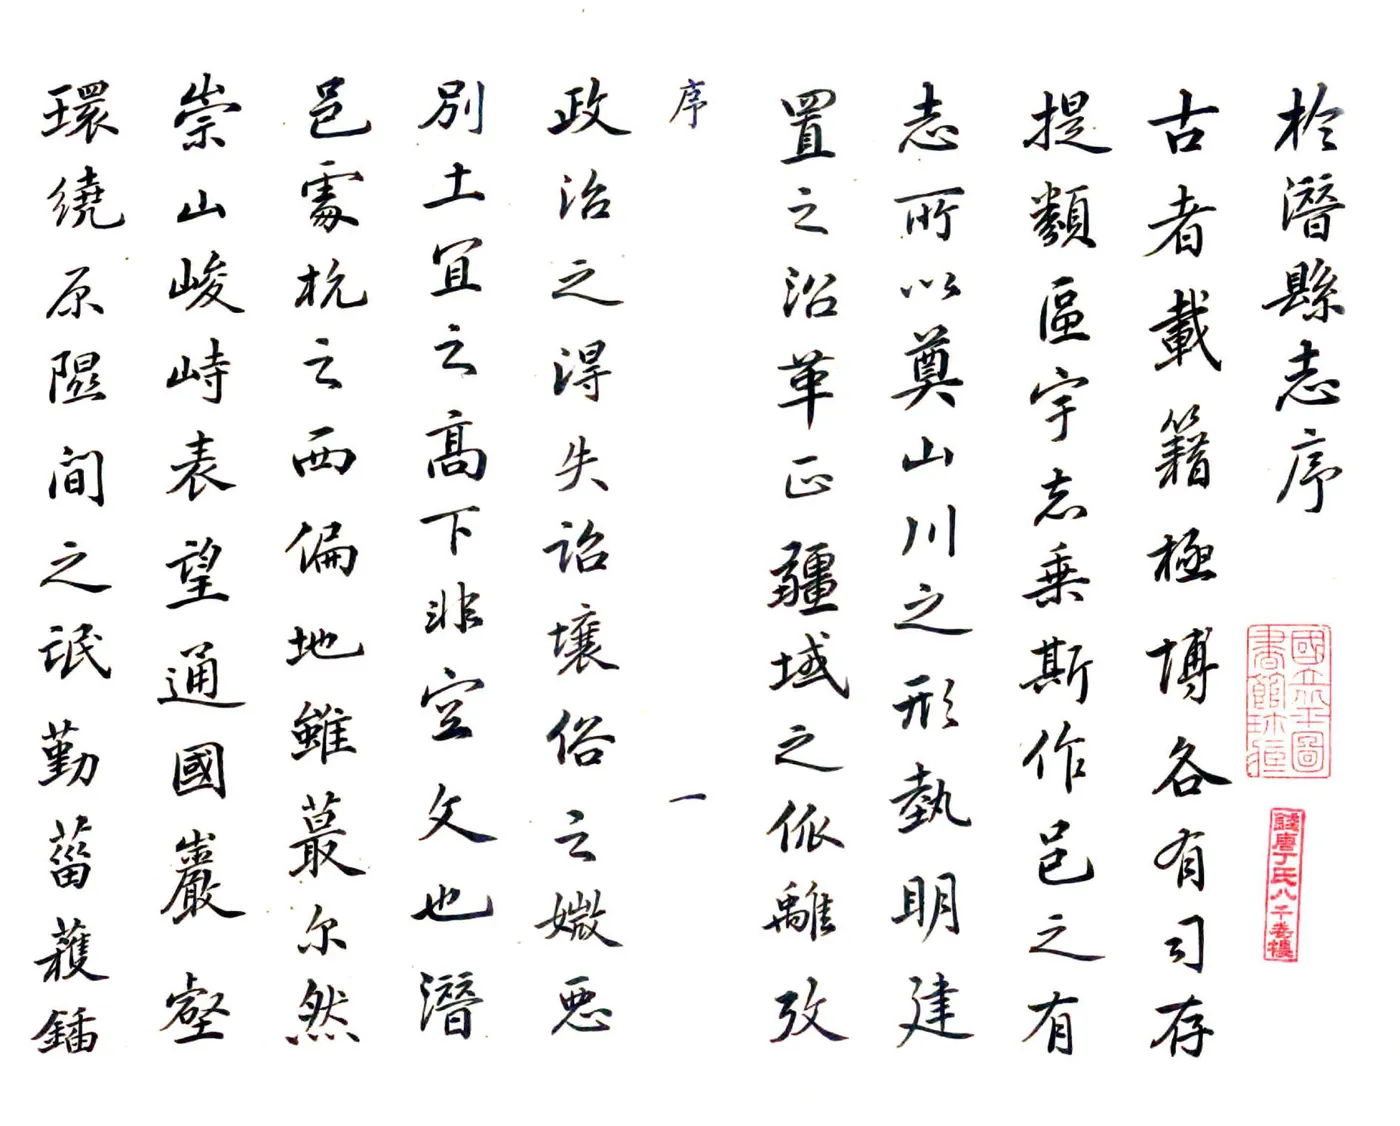 於潛縣志序
古者載籍極博各有司存
提類區宇志乗斯作邑之有
志所以奠山川之形勢明建
置之沿革正疆域之依離攷
序
一
政治之得失詒壤俗之媺惡
別土宜之高下非空文也潛
邑處杭之西偏地雖蕞尔然
崇山峻峙表望通國巖壑
環繞原隰間之氓勤菑穫鍤
國立圖書館珍藏
錢唐丁氏八千卷樓